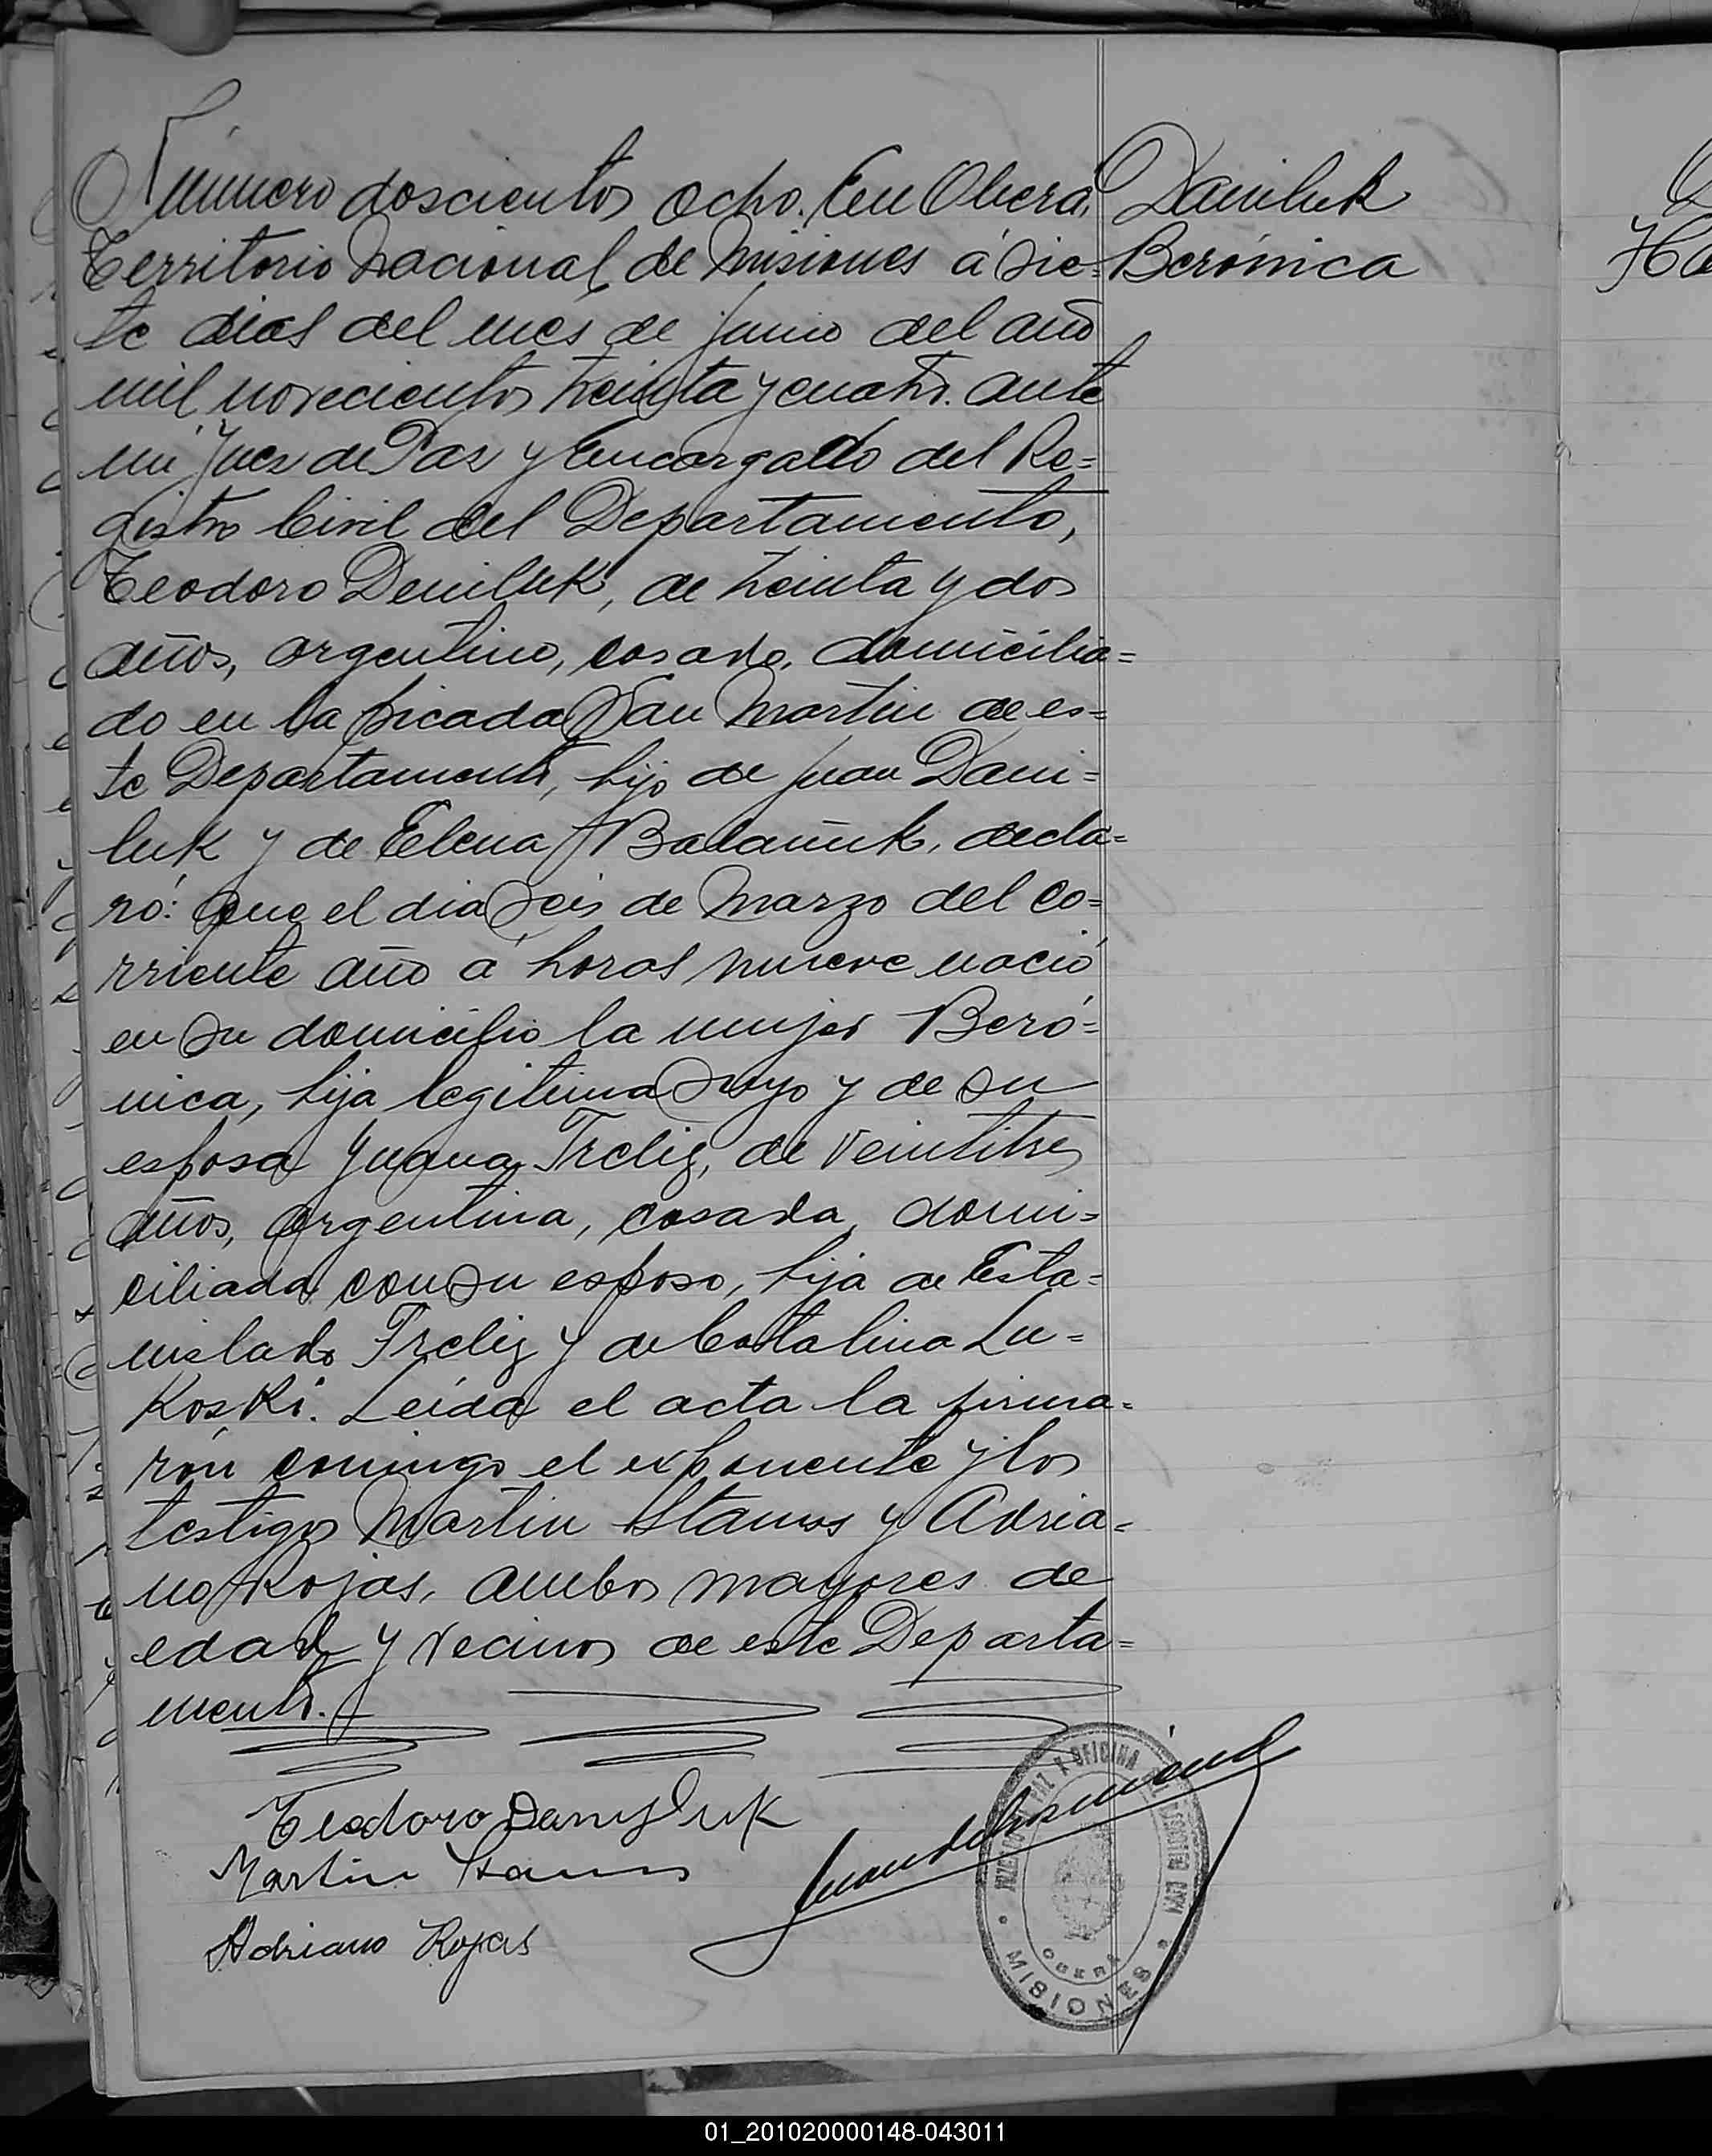 Número doscientos ocho. En Oberá,
Daniluk
Territorio Nacional de Misiones á sie=
Berónica
te dias del mes de junio del año
mil novecientos treinta y cuatro. ante
mi Juez de Paz y Encargado del Re=
gistro Civil del Departamento,
Teodoro Deniluk, de treinta y dos
años, argentino, casado, domicilia=
do en la picada San Martin de es=
te Departamento, hijo de Juan Dani=
luk y de Elena Balañuk, decla=
ró: Que el dia seis de Marzo del co=
rriente año á horas nueve nació
en su domicilio la mujer Beró=
nica, hija legitima suya y de su
esposa Juana Trelig, de veintitres
años, argentina, casada, domi=
ciliada con su esposo, hija de Esta=
nislado Trelig y de Catalina Lu=
Koski. Leida el acta la firma=
rón conmigo el exponente y los
testigos Martin Stamos y Adria=
no Rojas, ambos mayores de
edad y vecinos de este Departa=
mento.
Teodoro Danyluk
Martin
Adriano Rojas
JUZGADO DE PAZ Y OFICINA DEL REGISTRO CIVIL
OBERA
MISIONES
01_201020000148-043011